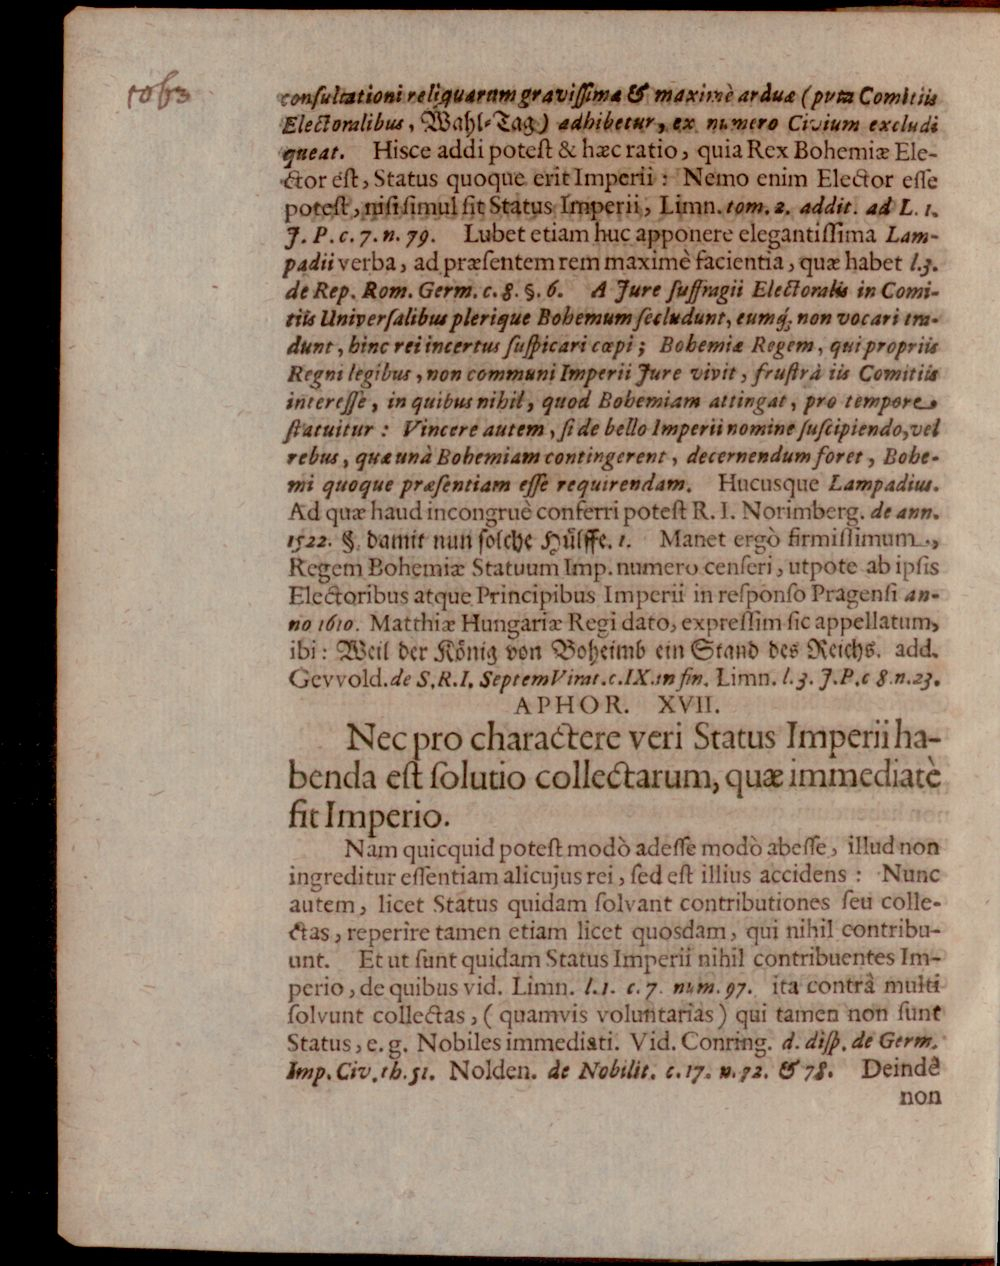 1063
consultationi reliquarum gravissimæ & maximè arduæ (puta Comitiis
Electoralibus, Wahl-Tag) adhibetur, ex numero Civium excludi
queat. Hisce addi potest & hæc ratio, quia Rex Bohemiæ Ele-
ctor est, Status quoque erit Imperii: Nemo enim Elector esse
potest, nisi simul sit Status Imperii, Limn. tom. 2. addit. ad L. 1.
J. P. c. 7. n. 79. Lubet etiam huc apponere elegantissima Lam-
padii verba, ad præsentem rem maximè facientia, quæ habet l. 3.
de Rep. Rom. Germ. c. 8. §. 6. A Jure suffragii Electoralis in Comi-
tiis Universalibus plerique Bohemum secludunt, eumq́; non vocari tra-
dunt, hinc rei incertus suspicari cœpi; Bohemiæ Regem, qui propriis
Regni legibus, non communi Imperii Jure vivit, frustrà iis Comitiis
interesse, in quibus nihil, quod Bohemiam attingat, pro tempore
statuitur: Vincere autem, si de bello Imperii nomine suscipiendo, vel
rebus, quæ unà Bohemiam contingerent, decernendum foret, Bohe-
mi quoque præsentiam esse requirendam. Hucusque Lampadius.
Ad quæ haud incongruè conferri potest R. I. Norimberg. de ann.
1522. §. damit nun solche Hülffe. 1. Manet ergò firmissimum,
Regem Bohemiæ Statuum Imp. numero censeri, utpote ab ipsis
Electoribus atque Principibus Imperii in responso Pragensi an-
no 1610. Matthiæ Hungariæ Regi dato, expressim sic appellatum,
ibi: Weil der König von Boheimb ein Stand des Reichs. add.
Gevvold. de S. R. I. Septem Virat. c. IX. in fin. Limn. l. 3. J. P. c 8. n. 23.
APHOR. XVII.
Nec pro charactere veri Status Imperii ha-
benda est solutio collectarum, quæ immediatè
fit Imperio.
Nam quicquid potest modò adesse modò abesse, illud non
ingreditur essentiam alicujus rei, sed est illius accidens: Nunc
autem, licet Status quidam solvant contributiones seu colle-
ctas, reperire tamen etiam licet quosdam, qui nihil contribu-
unt. Et ut sunt quidam Status Imperii nihil contribuentes Im-
perio, de quibus vid. Limn. l. 1. c. 7. num. 97. ita contrà multi
solvunt collectas, (quamvis voluntarias) qui tamen non sunt
Status, e. g. Nobiles immediati. Vid. Conring. d. disp. de Germ.
Imp. Civ. th. 51. Nolden. de Nobilit. c. 17. n. 72. & 78. Deindè
non